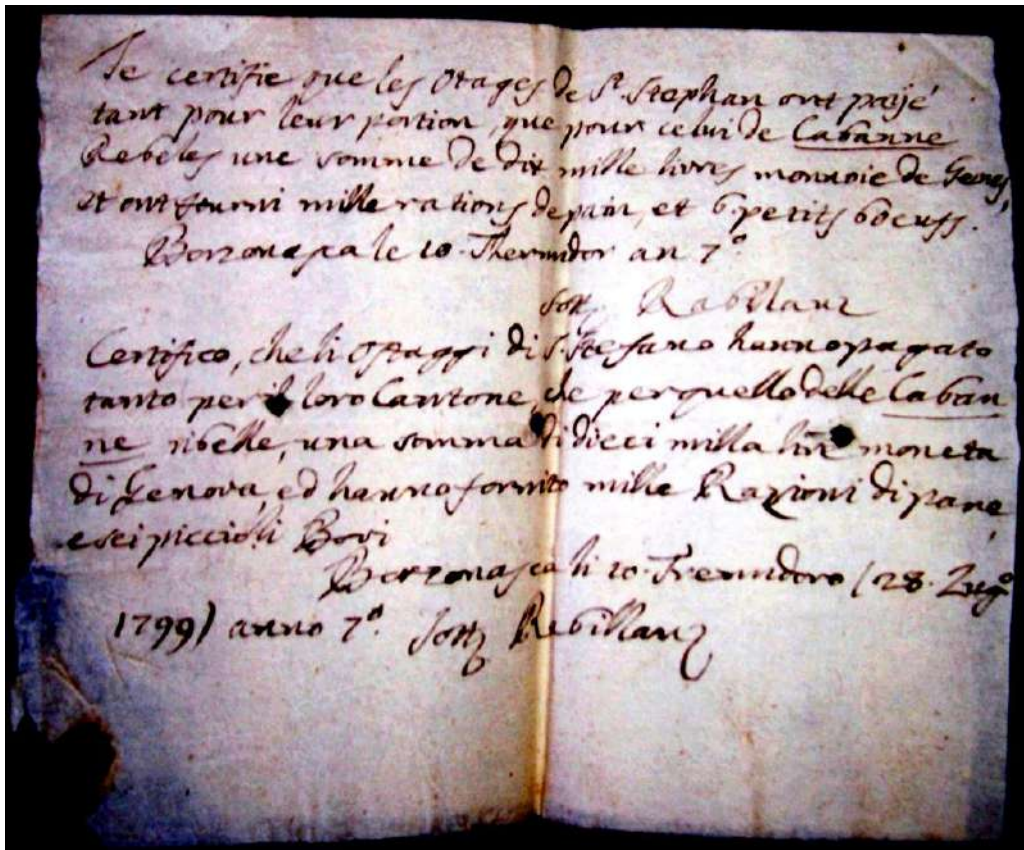 Je certifie que les Otages de St. Stephan ont payé
tant pour leur portion, que pour celui de Cabanne
Rebeles une somme de dix mille livres monnoie de Genes,
et ont fourni mille rations de pain, et 6 petits boeufs.
Borzonasca le 10 Thermidor an 7°
Sott. Rabillanz
Certifico, che li Ostaggi di S. Stefano hanno pagato
tanto per il loro Cantone, che per quello delle Caban
ne ribelle, una somma di dieci milla lire moneta
di Genova, ed hanno fornito mille Razioni di pane,
e sei piccioli Bovi
Borzonasca li 10 Tremidoro (28 Lug°
1799) anno 7° Sott. Rebillanz